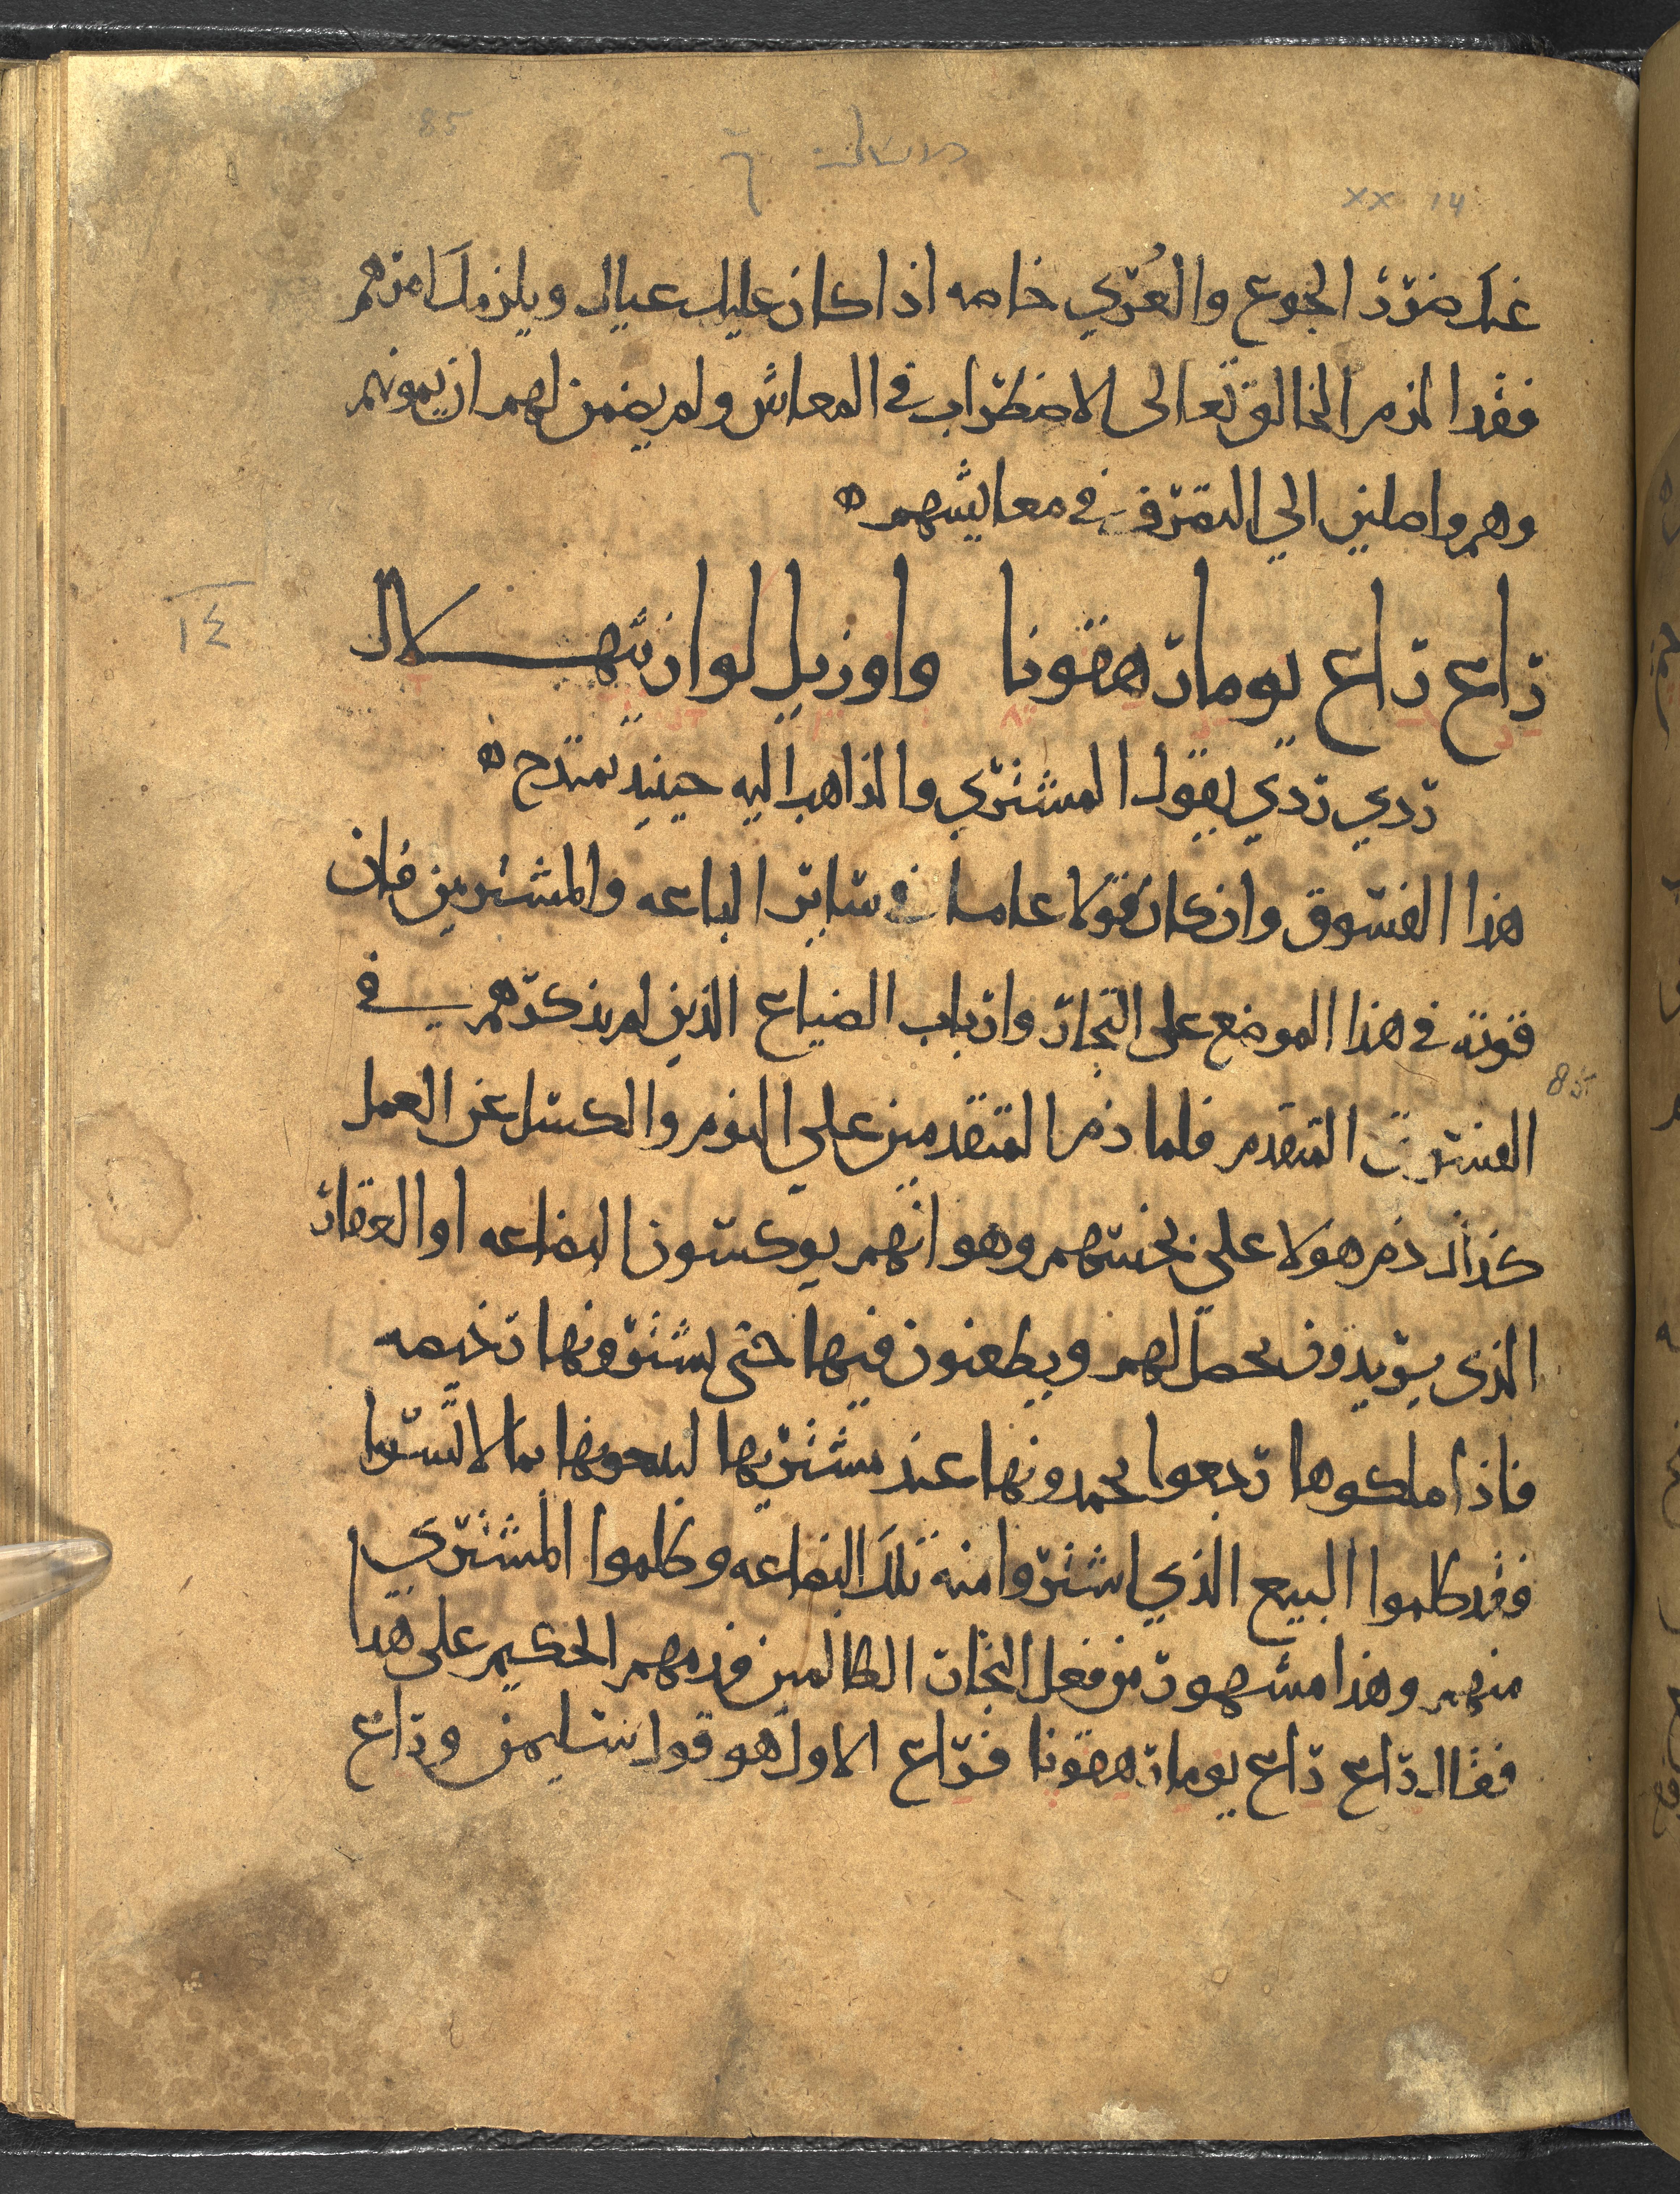 85
xx 14
عنك ضرر الجوع والعُري خاصه اذا كان عليك عيال ويلزمك امرهم
فقد الزم الخالق تعالى الاضطراب في المعاش ولم يضمن لهم ان يمونهم
وهم واصلين الي التصرف في معايشهم ه
١٤
راع راع يومار هقونا واوزيل لو از يتهلال
ردي ردي يقول المشتري والذاهب اليه حينيد يمتدح ه
هذا الفسوق وان كان قولا عاما في ساير الباعه والمشترين فان
قوته في هذا الموضع على التجار وارباب الضياع الذين لم يذكرهم في
85
الفسوق المتقدم فلما ذم المتقدمين علي النوم والكسل عن العمل
كذلك ذم هولا على بخسهم وهو انهم يوكسون البضاعه او العقار
الذى يريدون يحصل لهم ويطعنون فيها حتى يشترونها رخيصه
فاذا ملكوها رجعوا يحمدونها عند مشتريها ليبيعونها بما لا تسوا
فقد ظلموا البيع الذي اشتروا منه تلك البضاعه وظلموا المشتري
منهم وهذا مشهور من فعل التجار الظالمين فذمهم الحكيم على هذا
فقال راع راع يومار هقونا فراع الاول هو قول سليمن وراع